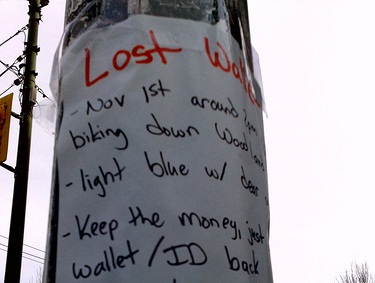 Lost
- Nov 1st around
biking down
- light blue w/
- Keep the money, just
wallet/ID back